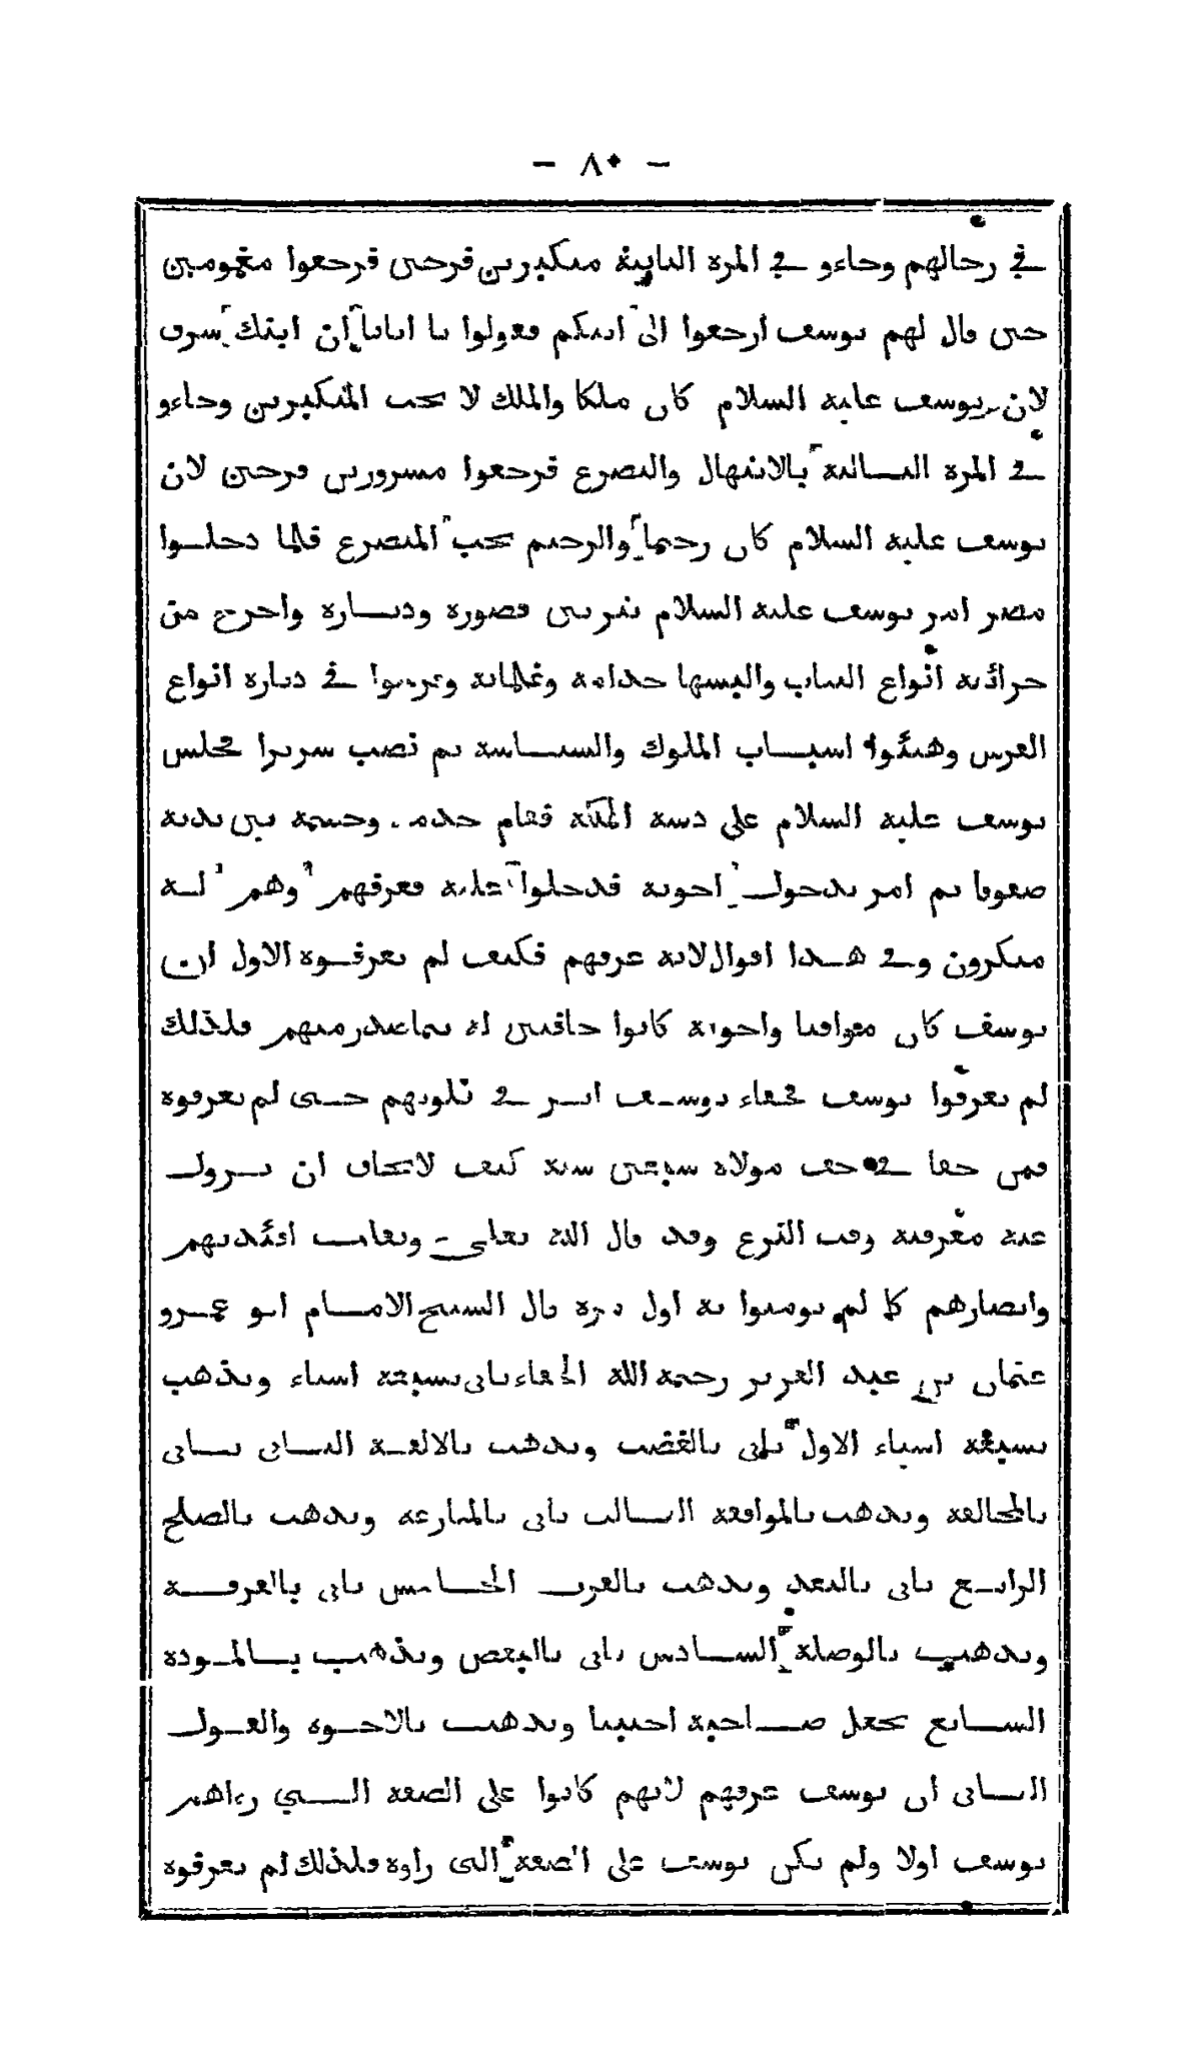 - ٨٠ -
في رحالهم وجاءو في المرة الثانية متكبرين فرحين فرجعوا مغمومين
حين قال لهم يوسف ارجعوا الى ابيكم فقولوا يا ابانا ان ابنك سرق
لان يوسف عليه السلام كان ملكا والملك لا يحب المتكبرين وجاءو
في المرة الثالثة بالابتهال والتضرع فرجعوا مسرورين فرحين لان
يوسف عليه السلام كان رحيما والرحيم يحب المتضرع فلما دخلوا
مصر امر يوسف عليه السلام بتزيين قصوره ودياره واخرج من
خزائنه انواع الثياب والبسها خدامه وغلمانه وتزينوا في دياره انواع
الفرش وهيئوا اسباب الملوك والسياسة ثم نصب سريرا فجلس
يوسف عليه السلام على دسة المملكة فقام خدمه وحشمه بين يديه
صفوفا ثم امر بدخول اخوته فدخلوا عليه فعرفهم وهم له
منكرون وفي هذا اقوال لانه عرفهم فكيف لم يعرفوه الاول ان
يوسف كان موافيا واخوته كانوا جافين له بما صدر منهم فلذلك
لم يعرفوا يوسف فجفاء يوسف اثر في قلوبهم حتى لم يعرفوه
فمن جفا في حق مولاه سبعين سنة كيف لا يخاف ان يزول
عنه معرفته وقت النزع وقد قال الله تعالى ونقلب افئدتهم
وابصارهم كما لم يومنوا به اول مرة قال الشيخ الامام ابو عمرو
عثمان بن عبد العزيز رحمه الله الجفاء ياتى بسبعة اشياء ويذهب
بسبعة اشياء الاول ياتى بالغضب ويذهب بالالفة الثانى ياتى
بالمخالفة ويذهب بالموافقة الثالث ياتى بالمنازعة ويذهب بالصلح
الرابع ياتى بالبعد ويذهب بالقرب الخامس ياتى بالفرقة
ويذهب بالوصلة السادس ياتى بالبغض ويذهب بالمودة
السابع يجعل صاحبه اجنبيا ويذهب بالاخوة والقول
الثانى ان يوسف عرفهم لانهم كانوا على الصفة التي رءاهم
يوسف اولا ولم يكن يوسف على الصفة التى راوه فلذلك لم يعرفوه